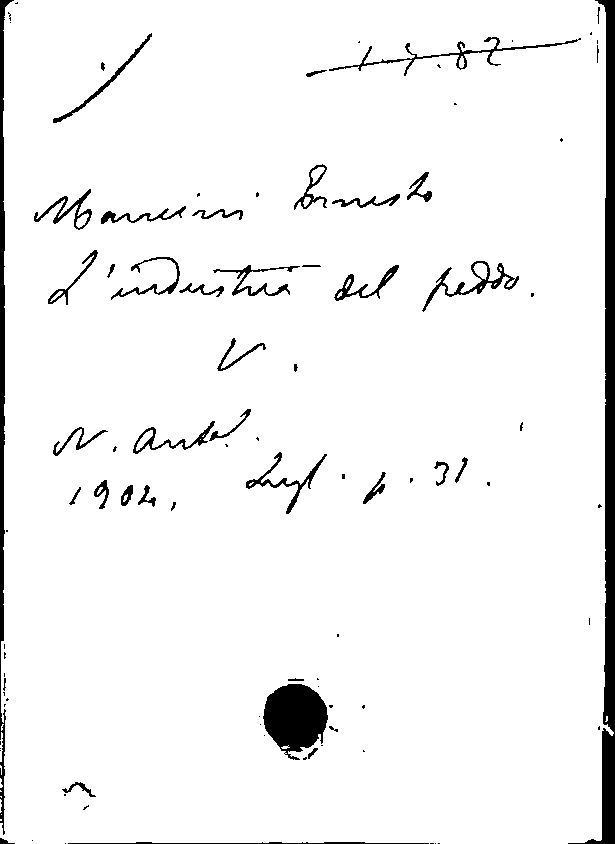 17.82
Mancini Ernesto
L'industria del freddo.
V.
N. Antol.
1904. Lugl. p. 31.